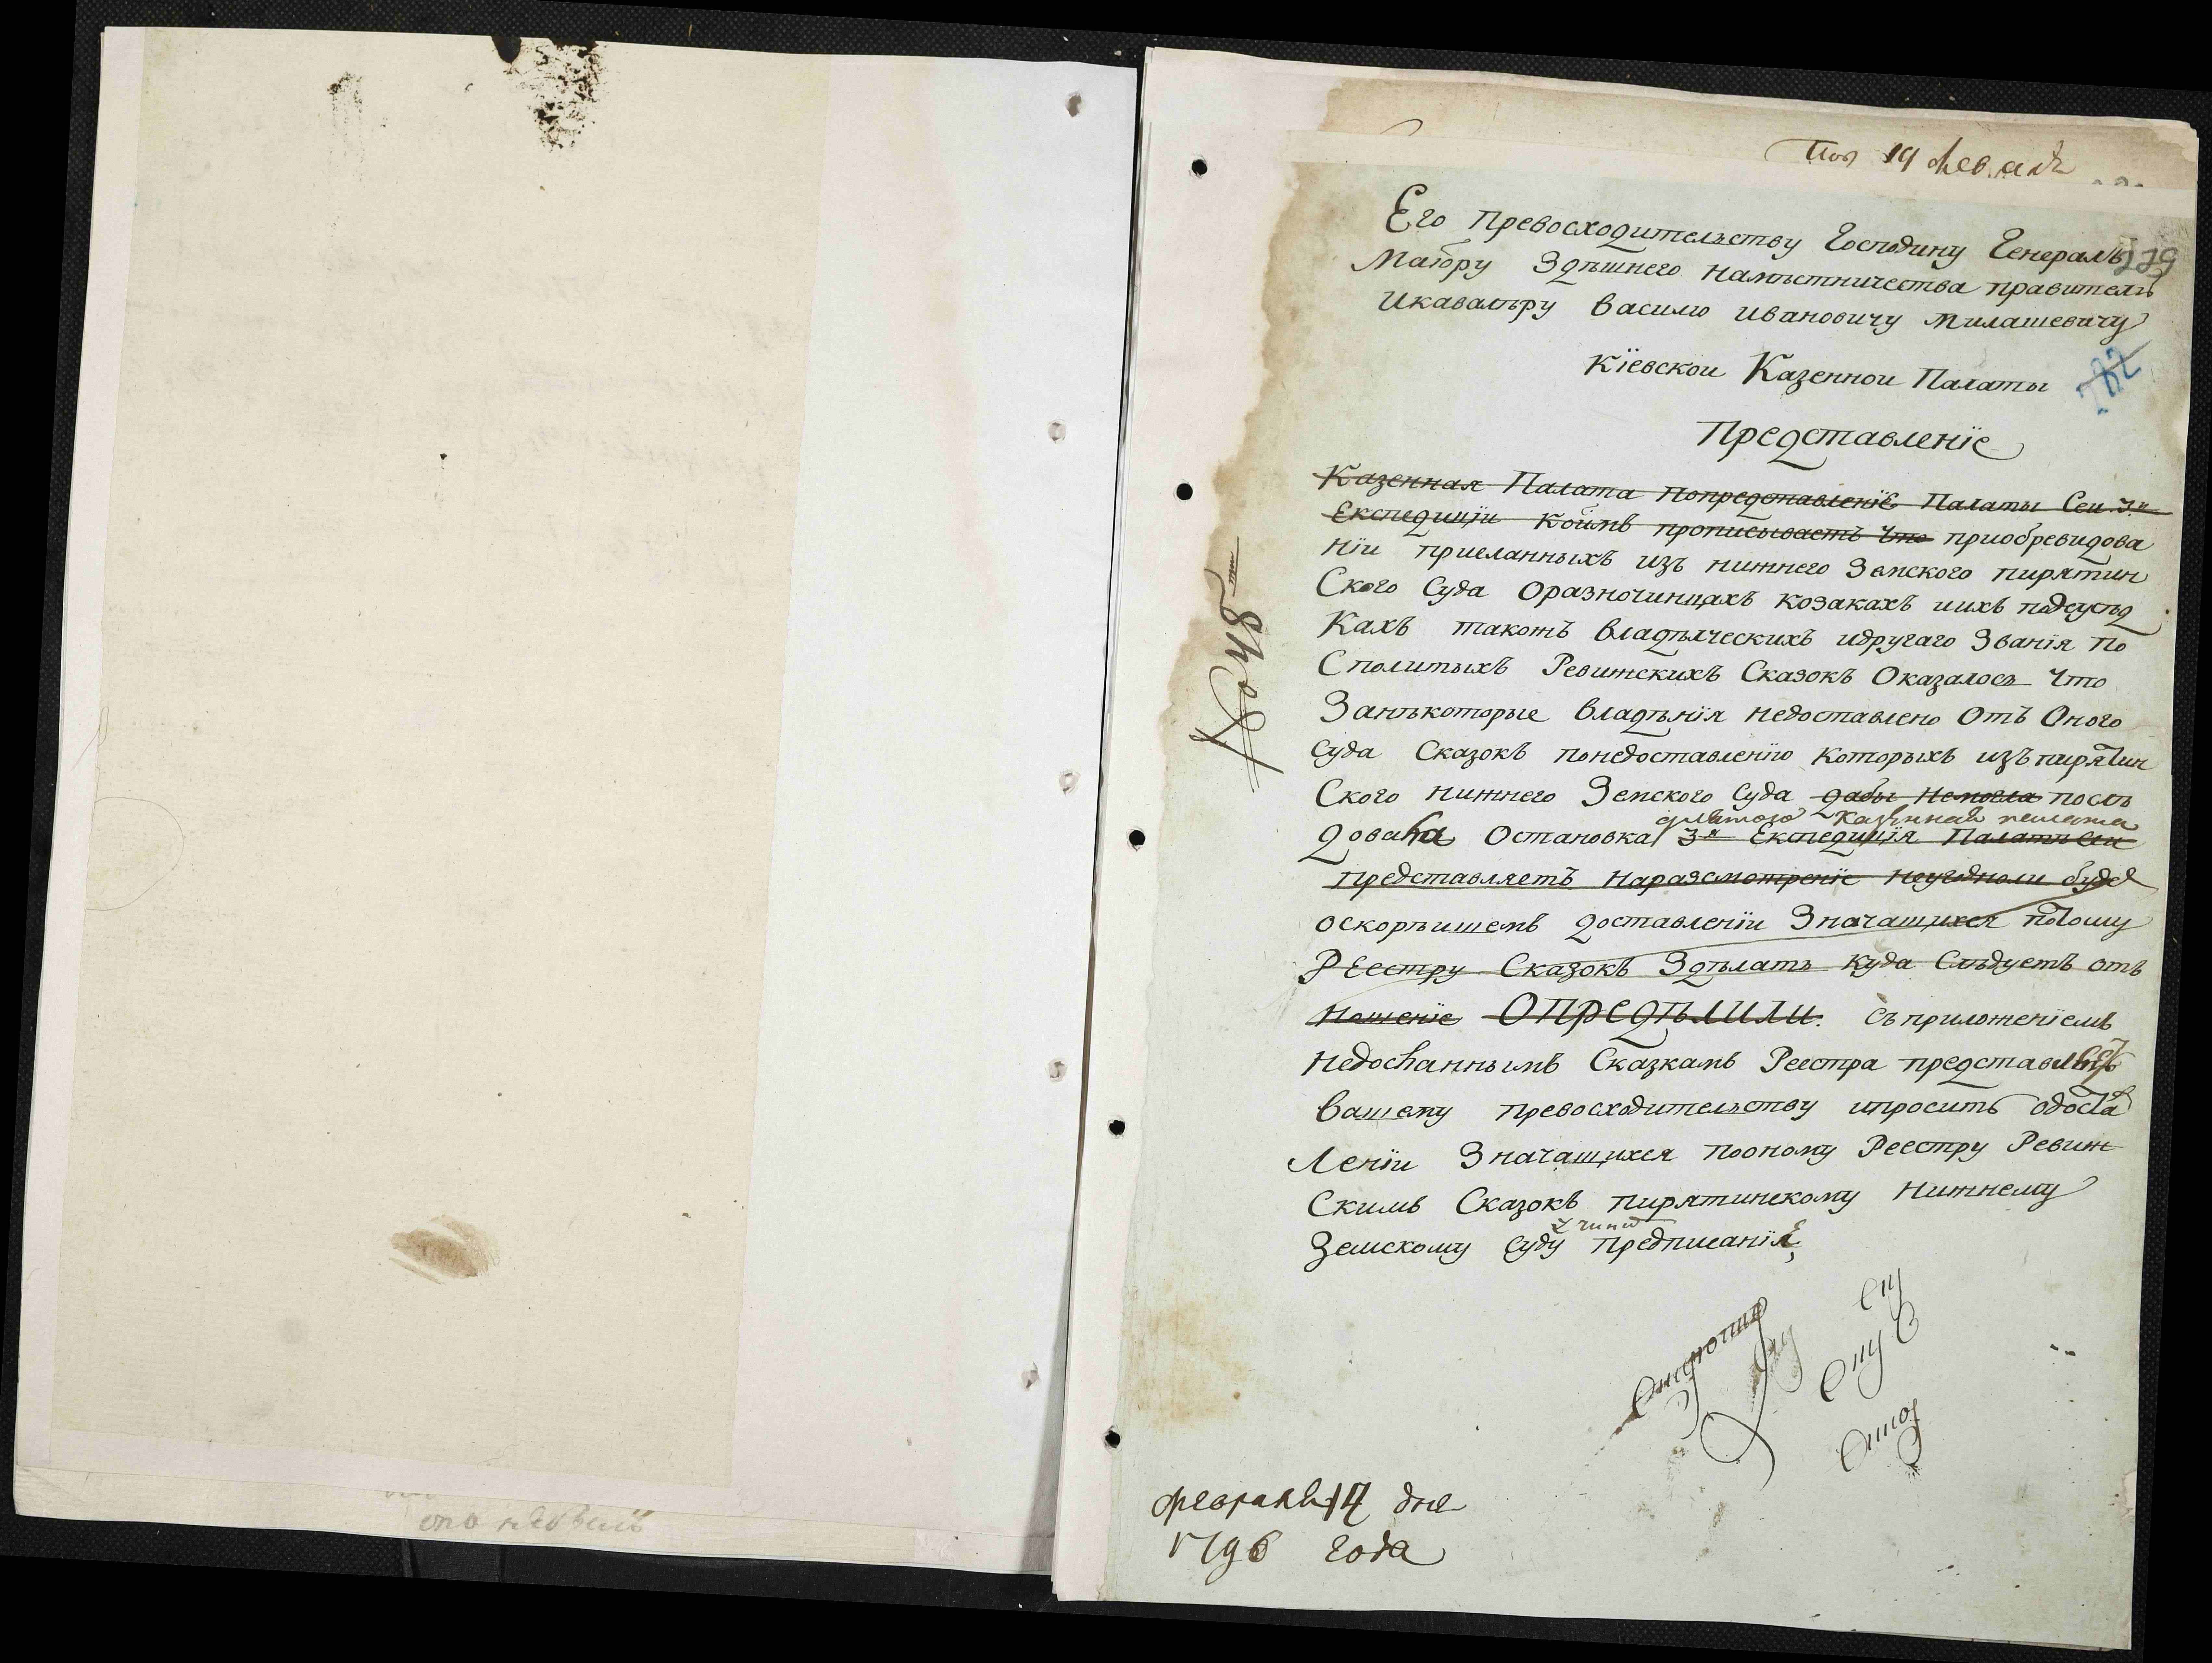 19 феврал
Его превосходителству Господину Генералъ
Маіору Здѣшнего намѣстничества правителю
Икавалѣру василю ивановичу милашевичу
Кіевскои Казеннои Палаты
Представленіе
Казенная Палата попредставленіе Палаты Сеи 3и
Експедиціи коимъ прописываетъ что приобревидова
ніи присланныхъ изъ нижнего Земского пирятин
Ского Суда Оразночинцахъ козакахъ иихъ подсусѣд
Кахъ такожъ владѣлческихъ идругаго Званія по
Сполитыхъ Ревижскихъ Сказокъ Оказалось что
Занѣкоторые владѣнія недоставлено Отъ Оного
Суда Сказокъ понедоставленію которыхъ изъ пирятин
Ского нижнего Земского Суда дабы немогла послѣ
казенная палата
довала Остановка 3я Експедиція Палаты Сеи
представляетъ наразсмотреніе неугодноли будет
оскорѣишемъ доставленіи Значащихся потому
Реестру Сказокъ Здѣлать куда Слѣдуетъ отъ
ношеніе Опредѣлили. съприложеніемъ
недосланнымъ Сказкамъ Реестра представить
вашему превосходителству ипросить одостав
Леніи Значащихся пооному Реестру Ревиж
Скимъ Сказокъ пирятинскому Нижнему
учинит
Земскому Суду предписаніе
февраля 14 дня
1796 года